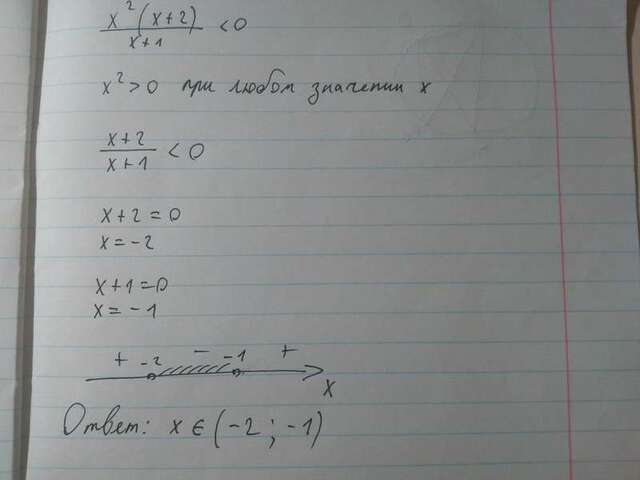 x²(x+2)/(x+1) < 0
x² > 0 при любом значении x
(x+2)/(x+1) < 0
x+2=0
x=-2
x+1=0
x=-1
+ -2 − -1 +
x
Ответ: x ∈ (-2; -1)